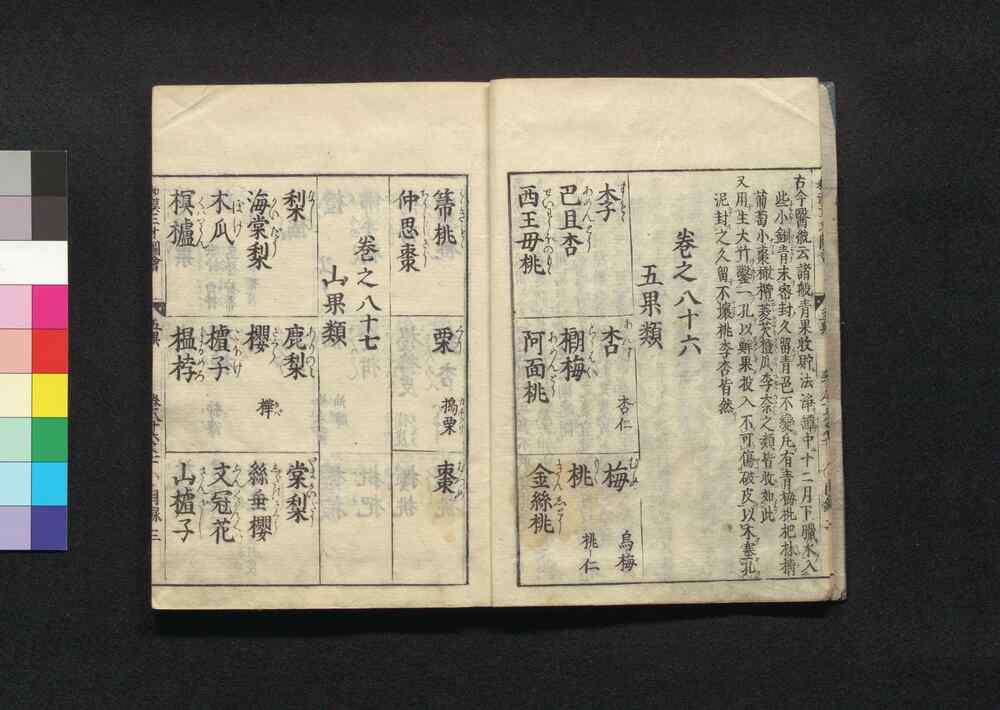 古今醫統云諸般青果收貯法淨罈中十二月下臘水入
些小銅青末密封久留青色不變凡有青梅枇杷林檎
葡萄小棗橄欖菱芡甜瓜李柰之類皆收如此
又用生大竹鑿一孔以鮮果投入不可傷破皮以木塞孔
泥封之久留不壞桃李杏皆然
卷之八十六
五果類
李子
杏 杏仁
梅 烏梅
巴且杏
榔梅
桃 桃仁
西王母桃
阿面桃
金絲桃
箒桃
栗 搗栗
棗
仲思棗
卷之八十七
山果類
梨
鹿梨
棠梨
海棠梨
櫻 樺
絲垂櫻
木瓜
樝子
文冠花
榠樝
榲桲
山樝子